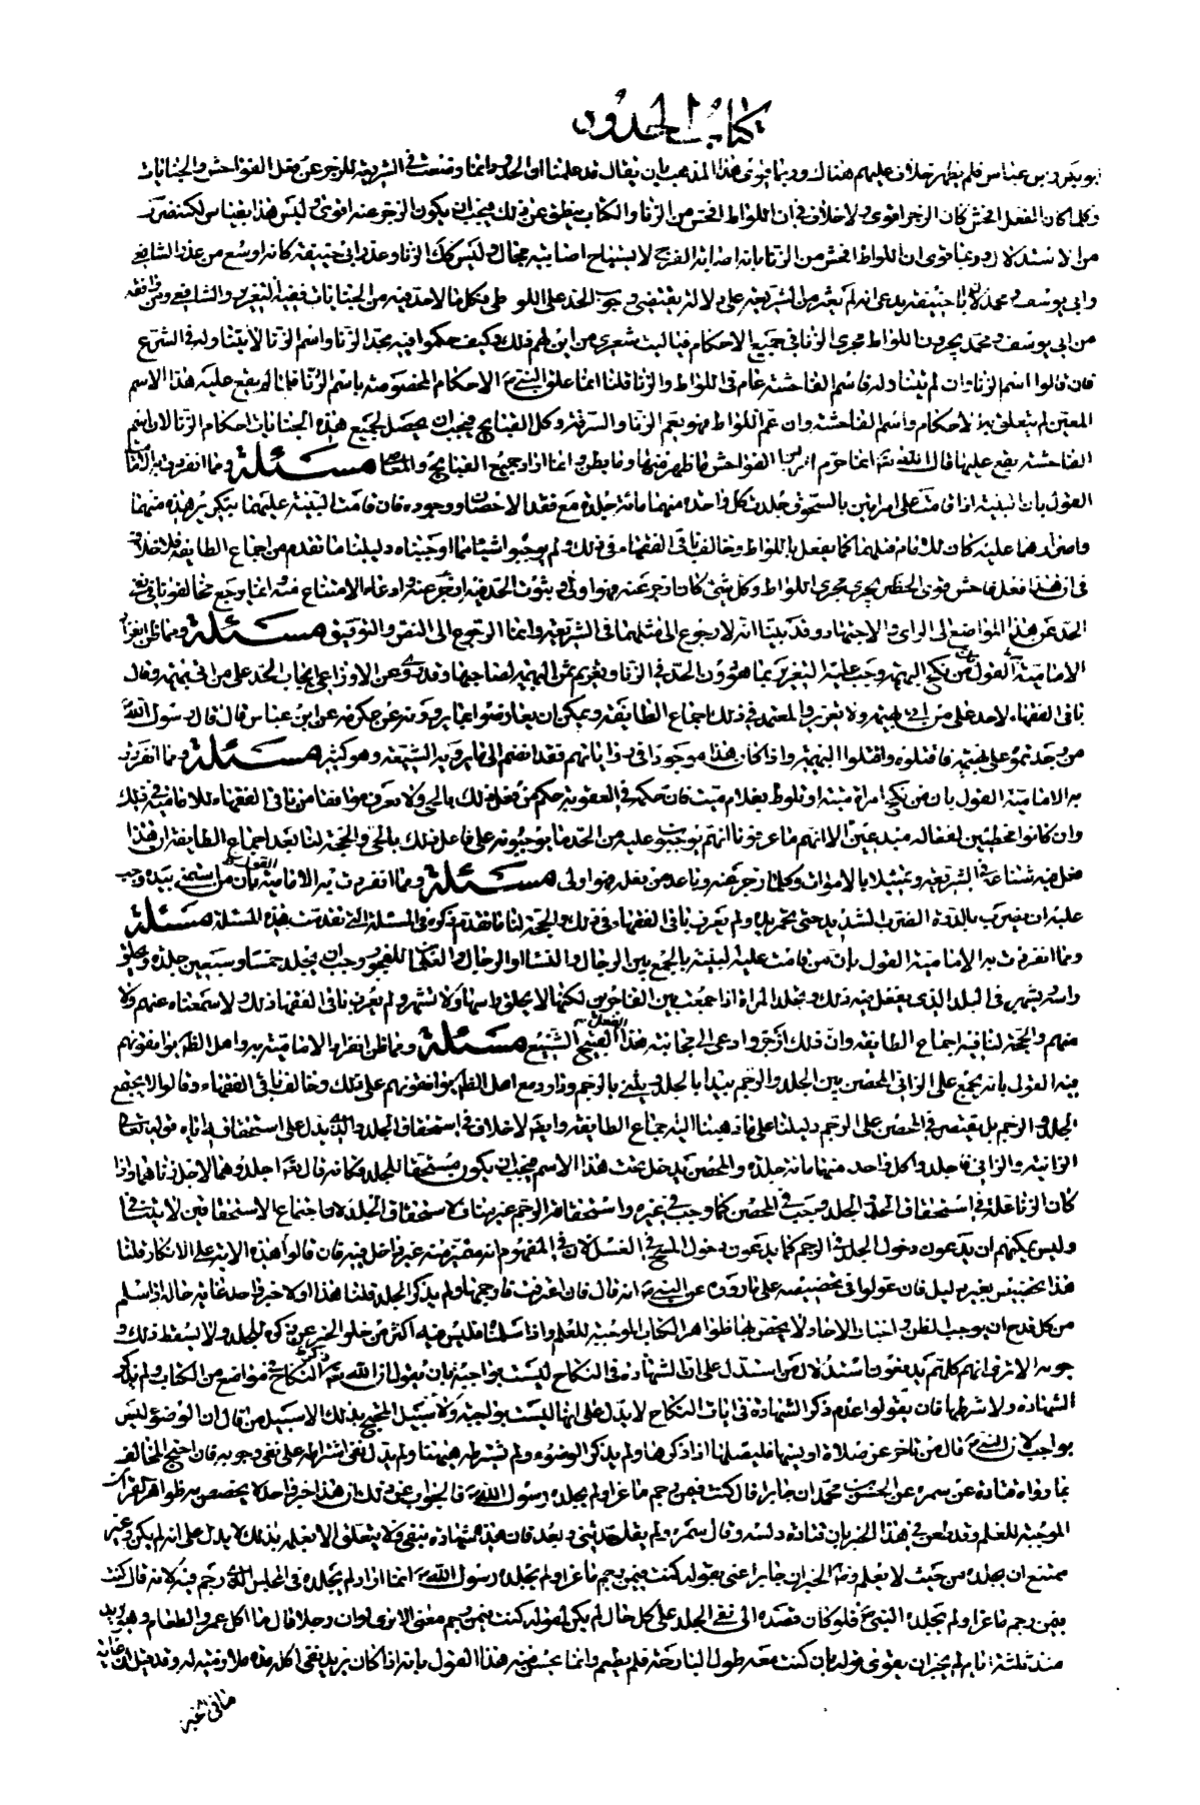 كتاب الحدود
بن عباس فلم يظهر خلاف عليهم هناك وربما قوى هذا المذهب بان يقال قد علمنا ان الحدود انما وضعت في الشريعة للزجر عن فعل الفواحش والجنايات
وكلما كان الفعل افحش كان الزجر اقوى ولا خلاف في ان اللواط افحش من الزنا والكتاب ينطق عن ذلك فيجب ان يكون الزجر عنه اقوى وليس هذا بقياس لكنه ضرب
من الاستدلال وربما قوى ان اللواط افحش من الزنا بانه اصابة الفرج لا يستباح اصابته بحال وليس كك الزنا وعذر ابي حنيفة كانه اوسع من عذر الشافعي
وابي يوسف ومحمد لان ابا حنيفة يدعى انه لم يعثر من الشريعة على دلالة يقتضى وجوب الحد على اللوطى فكل ما لا حد فيه من الجنايات ففيه التعزير والشافعي ومن وافقه
من ابي يوسف ومحمد يجرون اللواط مجرى الزنا في جميع الاحكام فياليت شعري من اين لهم ذلك وكيف حكموا فيه بحد الزنا واسم الزنا لا يتناوله في الشرع
فان قالوا اسم الزنا وان لم يتناوله فاسم الفاحشة عام في اللواط والزنا قلنا انما علق النبي الاحكام المخصوصة باسم الزنا فما لم يقع عليه هذا الاسم
المعين لم يتعلق به الاحكام واسم الفاحشة وان عم اللواط فهو يعم الزنا والسرقة وكل القبايح فيجب ان يحصل لجميع هذه الجنايات احكام الزنا لان اسم
الفاحشة يقع عليها قال الله انما حرم ربى الفواحش ما ظهر منها وما بطن وانما اراد جميع القبايح والمعاصى مسئلة ومما انفردت به الامامية
القول بان البينة اذا قامت على امراتين بالسحق جلدت كل واحدة منهما مائة جلدة مع فقد الاحصان ووجوده فان قامت البينة عليهما بتكرير هذه منهما
واصرارهما عليه كان للامام قتلهما كما يفعل باللواط وخالف باقى الفقهاء في ذلك ولم يوجبوا شيئا مما اوجبناه دليلنا ما تقدم من اجماع الطايفة فلا خلاف
في ان هذا فعل فاحش قوى الحظر يجرى مجرى اللواط وكل شئ كان ازجر عنه فهو اولى وثبوت الحد فيه ازجر عنه وادعا الى الامتناع منه وانما يرجع مخالفونا في نفى
الحد عن هذه المواضع الى الراى والاجتهاد وقد بينا انه لا رجوع الى مثلهما في الشريعة وانما الرجوع الى النص والتوقيف مسئلة ومما ظن انفراد
الامامية به القول بان من نكح البهيمة وجب عليه التعزير بما هو دون الحد في الزنا وتغريم ثمن البهيمة لصاحبها وقد روى عن الاوزاعى ايجاب الحد على من اتى بهيمة وقال
باقى الفقهاء لا حد على من اتى بهيمة ولا تعزير والمعتمد في ذلك اجماع الطايفة ويمكن ان يعارضوا بما يروونه عن عكرمة عن ابن عباس قال قال رسول الله
من وجدتموه على بهيمة فاقتلوه واقتلوا البهيمة واذا كان هذا موجودا في رواياتهم فقد انضم الى ما يرويه الشيعة وهو كثير مسئلة ومما انفردت
به الامامية القول بان من نكح امراة ميتة او تلوط بغلام ميت فان حكمه في العقوبة حكم من فعل ذلك بالحى ولا نعرف موافقا من باقى الفقهاء للامامية في ذلك
وان كانوا مخطئين لفعاله مبدعين الا انهم ما عرفونا انهم يوجبون عليه من الحد ما يوجبونه على فاعل ذلك بالحى والحجة لنا بعد اجماع الطايفة ان هذا
فعل فيه شناعة في الشريعة وتمثيلا بالاموات وكلما زجر عنه وباعد من فعله فهو اولى مسئلة ومما انفردت به الامامية القول بان من استمنى بيده وجب
عليه ان يضرب بالدرة الضرب الشديد حتى تحمر يده ولم يعرف باقى الفقهاء ذلك والحجة لنا ما تقدم ذكره في المسئلة التى تقدمت هذه المسئلة مسئلة
ومما انفردت به الامامية القول بان من قامت عليه البينة بالجمع بين الرجال والنساء او الرجال والغلمان للفجور وجب ان يجلد خمسا وسبعين جلدة ويحلق
راسه ويشهر في البلد الذى يفعل فيه ذلك وتجلد المراة اذا جمعت بين الفاجرين لكنها لا يحلق راسها ولا تشهر ولم يعرف باقى الفقهاء ذلك ولا سمعناه عنهم ولا
منهم والحجة لنا فيه اجماع الطايفة وان ذلك ازجر وادعى الى مجانبة هذا الفعل القبيح الشنيع مسئلة ومما ظن انفراد الامامية به واهل الظاهر يوافقونهم
فيه القول بانه يجمع على الزانى المحصن بين الجلد والرجم يبدا بالجلد ويثنى بالرجم وداود مع اهل الظاهر يوافقونهم على ذلك وخالف باقى الفقهاء وقالوا لا يجتمع
الجلد والرجم بل يقتصر في المحصن على الرجم دليلنا على ما ذهبنا اليه اجماع الطايفة وايضا لا خلاف في استحقاق الجلد والذى يدل على استحقاقه اياه قوله تعالى
الزانية والزانى فاجلدوا كل واحد منهما مائة جلدة والمحصن يدخل تحت هذا الاسم فيجب ان يكون مستحقا للجلد فكانه قال اجلدوهما لاجل زناهما واذا
كان الزنا علة في استحقاق الجلد وجب في المحصن كما وجب في غيره واستحقاق الرجم غير مناف لاستحقاق الجلد لان اجتماع الاستحقاقين لا يتنافى
وليس يمكنهم ان يدعون دخول الجلد في الرجم كما يدعون دخول المسح في الغسل لان في المفهوم انه متميز منه غير داخل فيه فان قالوا هذه الاية على الابكار قلنا
هذا تخصيص بغير دليل فان عولوا في تخصيصه على ما رووه عن النبي انه قال فان اعترفت فارجمها ولم يذكر الجلد قلنا هذا اولا خبر واحد غاية حاله اذا سلم
من كل قدح ان يوجب الظن واخبار الاحاد لا يخص بها ظواهر الكتاب الموجبة للعلم واذا سلمناه فليس فيه اكثر من خلو الخبر عن ذكر الجلد ولا يسقط ذلك
وجوبه الا ترى انهم كلهم يدفعون استدلال من استدل على ان الشهادة في النكاح ليست بواجبة بان يقول ان الله ذكر النكاح في مواضع من الكتاب ولم يذكر
الشهادة ولا شرطها فان يقولوا عدم ذكر الشهادة في ايات النكاح لا يدل على انها ليست بواجبة ولا سبيل المحتج بذلك الا سبيل من قال ان الوضوء ليس
بواجب لان النبي قال من نام عن صلاة او نسيها فليصلها اذا ذكرها ولم يذكر الوضوء ولم يشترطه هيهنا ولم يدل نفى اشتراطه على نفى وجوبه فان احتج المخالف
بما رواه قتادة عن سمره عن الحسن محمد ان جابرا قال كنت فيمن رجم ماعزا ولم يجلده رسول الله فالجواب عن ذلك ان هذا خبر واحد لا يخصص به ظواهر القران
الموجبة للعلم وقد طعن في هذا الخبر بان قتادة دلسه وقال سمره ولم يقل حدثنى وبعد فان هذه شهادة بنفى ولا يتعلق الا بعلمه بذلك لا يدل على انه لم يكن وغير
ممتنع ان يجلده من حيث لا يعلم وظاهر الخبر ان جابرا عنى بقوله كنت فيمن رجم ماعزا ولم يجلده رسول الله انما اراد لم يجلده في المجلس الذى رجم فيه لانه قال كنت
فيمن رجم ماعزا ولم يجلده النبي فلو كان قصده الى نفى الجلد على كل حال لم يكن لقوله كنت فيمن رجم معنى الا ترى لو ان رجلا قال ما اكل عمرو الطعام وهو يريد
منذ ثلثة ايام لم يجز ان يقوى قوله بان كنت معه طول البارحة فلم يطعم وانما يحسن فيه هذا القول بانه اذا كان يريد نفى اكله مدة ملازمته له وقد قيل ان غاية
ما في خبر